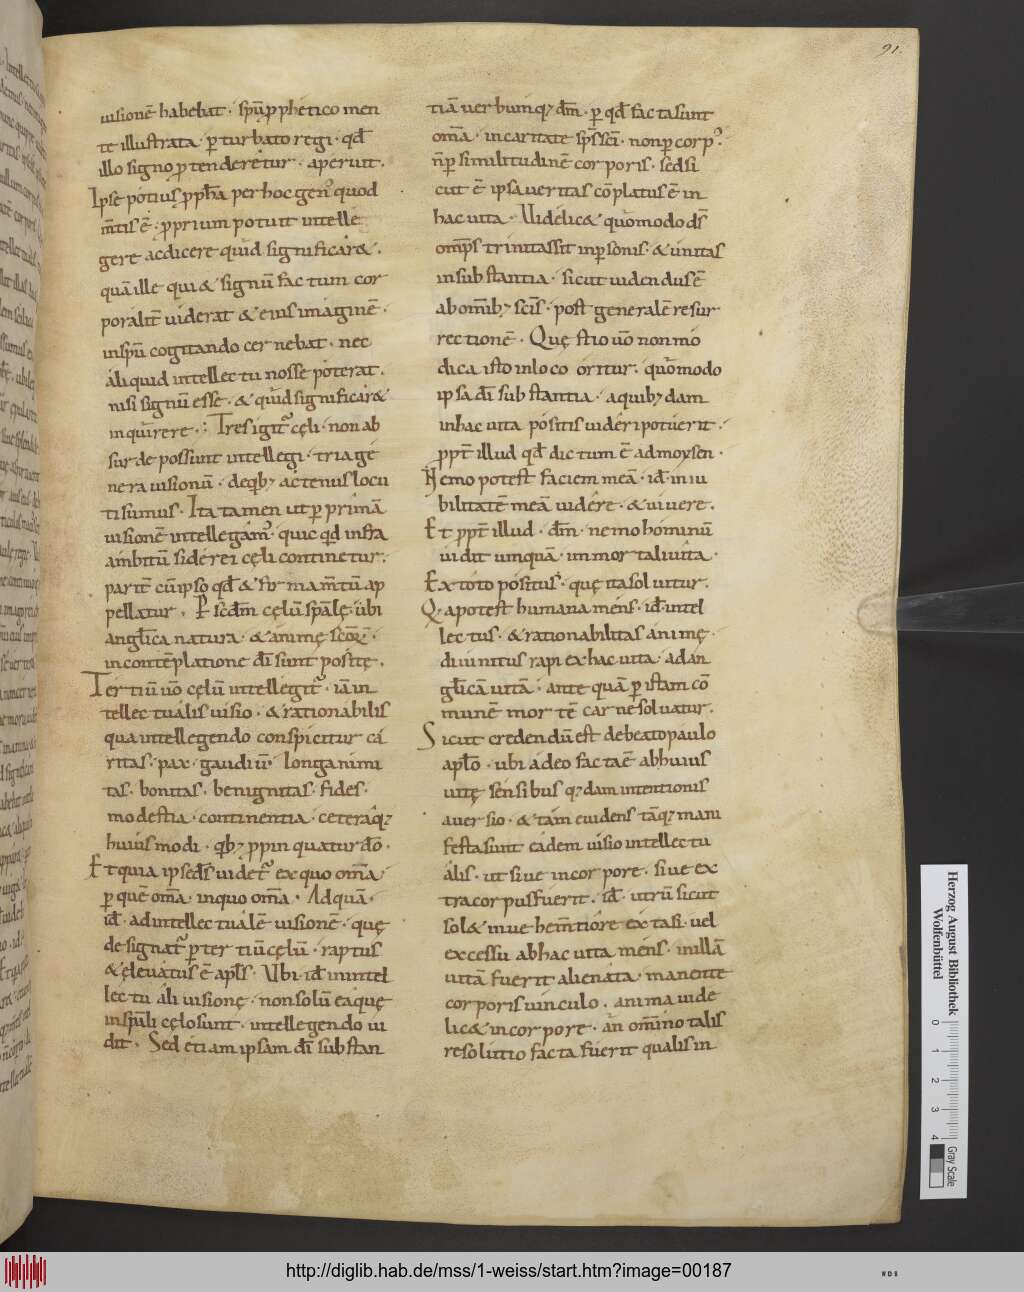 91.
uisionē habebat · spū p̱phetico men
te illustrata · p̱turbato regi · qđ
illo signo p̱tenderetur · aperuit ·
Ipse potius p̱ph̄a per hoc gen᾽ quod
m̄tis ē · p̱prium potuit intelle
gere ac dicere quid significar& ·
quā ille qui & signū factum cor
poralit̄ uiderat & eius imaginē ·
in spū cogitando cernebat · nec
aliquid intellectu nosse poterat ·
nisi signū esse · & quid significar&
inquirere · Tres igit᾽ cęli · non ab
surde possunt intellegi · tria ge
nera uisionū · de qb; actenus locu
ti sumus · Ita tamen ut p̱ primā
uisionē intellegam᾽ · quicqd infra
ambitū siderei cęli continetur ·
parit̄ cū ipso qđ & firmam̄tū ap
pellatur · P̱ scdm̄ cęlū spālę · ubi
anglica natura · & animę scōꝝ ·
in contēplatione dī sunt positę ·
Tertiū uō cęlū intellegit᾽ · iā in
tellectualis uisio · & rationabilis
qua intellegendo conspicitur ca
ritas · pax · gaudiū · longanimi
tas · bonitas · benignitas · fides ·
modestia · continentia · ceteraq;
huiusmodi · qb; p̱pinquatur dō ·
Et quia ipse ds̄ uidet᾽ ex quo om̄a
p̱ quē om̄a · in quo om̄a · Ad quā ·
id̄ · ad intellectualē uisionē · quę
designat᾽ p̱ tertiū cęlū · raptus
& eleuatus ē apls̄ · Ubi id̄ in intel
lectuali uisionę · non solū ea quę
in spūali cęlo sunt · intellegendo ui
dit · Sed etiam ipsam dī substan
tiā uerbumq; dm̄ · p̱ qđ facta sunt
om̄a · in caritate sp̄s sci · non p̱ corp᾽ ·
n̄ p̱ similitudinē corporis · sed si
cut ē ipsa ueritas cōplatus ē in
hac uita · Uidelic& quomodo ds̄
omp̄s trinitas sit in p̱sonis · & unitas
in substantia · sicut uidendus ē
ab omīb; scīs · post generalē resur
rectionē · Quęstio uō non mo
dica isto in loco oritur · quomodo
ipsa dī substantia · a quib;dam
in hac uita positis uideri potuerit ·
p̱pt̄ illud qđ dictum ē ad moysen ·
Nemo potest faciem meā · id̄ · inui
bilitatē meā uidere · & uiuere ·
Et p̱pt̄ illud · dm̄ · nemo hominū
uidit umquā · in mortali uita ·
Ex toto positus · quę ita soluitur ·
Q; a potest humana mens · id̄ · intel
lectus · & rationabilitas animę ·
diuinitus rapi ex hac uita · ad an
glicā uitā · ante quā p̱ istam cō
munē mortē carne soluatur ·
Sicut credendū est de beato paulo
aplō · ubi adeo facta ē ab huius
uitę sensibus q;dam intentionis
auersio · & tam euidens tāq; mani
festa sunt eadem uisio intellectu
alis · ut siue in corpore · siue ex
tra corpus fuerit · id̄ · utrū sicut
sol& in uehem̄tiore extasi · uel
excessu ab hac uita mens · in illā
uitā fuerit alienata · manente
corporis uinculo · anima uide
lic& in corpore · an om̄ino talis
resolutio facta fuerit qualis in
Herzog August Bibliothek
Wolfenbüttel
0 1 2 3 4 Gray Scale
http://diglib.hab.de/mss/1-weiss/start.htm?image=00187